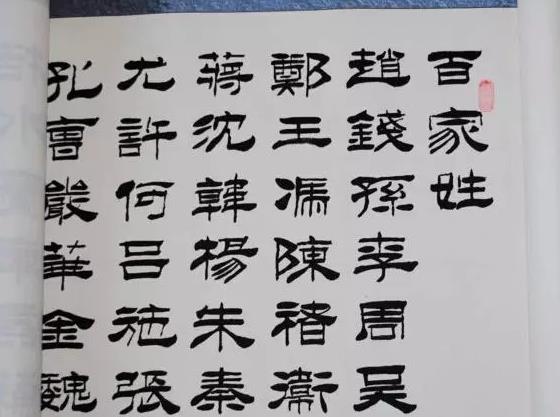 百家姓
趙錢孫李周吳
鄭王馮陳褚衛
蔣沈韓楊朱秦
尤許何呂施張
孔曹嚴華金魏